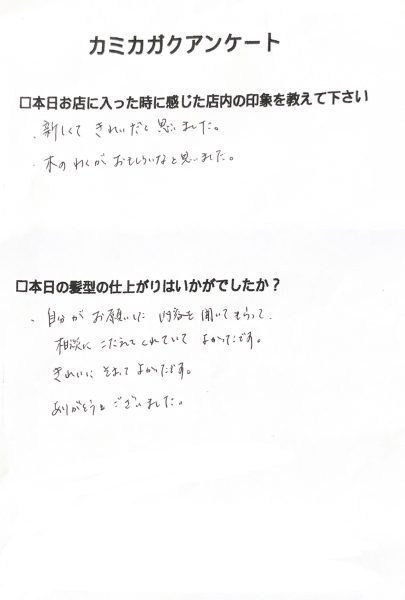 カミカガクアンケート
□本日お店に入った時に感じた店内の印象を教えて下さい
・新しくて きれいだと 思いました。
・木の わくが おもしろいなと 思いました。
□本日の髪型の仕上がりはいかがでしたか？
・自分が お願いした 内容を 聞いてもらって、
相談に こたえてくれていて よかったです。
きれいに そめて よかったです。
ありがとうございました。